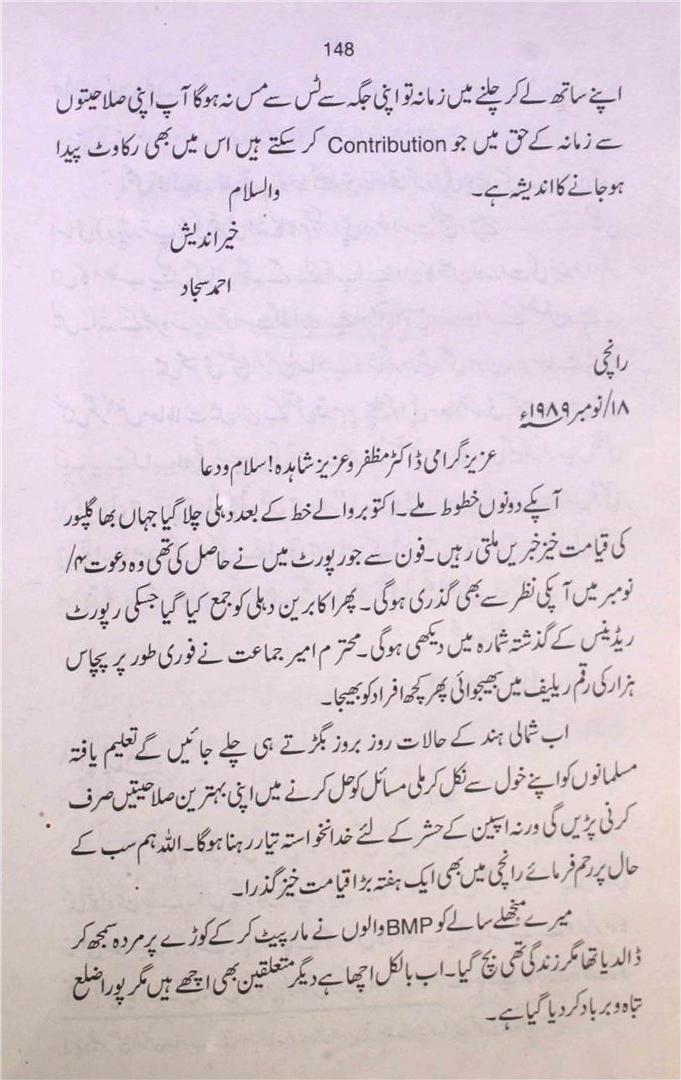 148
اپنے ساتھ لے کر چلنے میں زمانہ تو اپنی جگہ سے ٹس سے مس نہ ہوگا آپ اپنی صلاحیتوں
سے زمانہ کے حق میں جو Contribution کر سکتے ہیں اس میں بھی رکاوٹ پیدا
ہو جانے کا اندیشہ ہے۔
والسلام
خیر اندیش
احمد سجاد
رانچی
۱۸/نومبر ۱۹۸۹ء
عزیز گرامی ڈاکٹر مظفر و عزیز شاہدہ! سلام و دعا
آپکے دونوں خطوط ملے۔ اکتوبر والے خط کے بعد دہلی چلا گیا جہاں بھاگلپور
کی قیامت خیز خبریں ملتی رہیں۔ فون سے جو رپورٹ میں نے حاصل کی تھی وہ دعوت ۴/
نومبر میں آپکی نظر سے بھی گذری ہوگی۔ پھر اکابرین دہلی کو جمع کیا گیا جسکی رپورٹ
ریڈینس کے گذشتہ شمارہ میں دیکھی ہوگی۔ محترم امیر جماعت نے فوری طور پر پچاس
ہزار کی رقم ریلیف میں بھیجوائی پھر کچھ افراد کو بھیجا۔
اب شمالی ہند کے حالات روز بروز بگڑتے ہی چلے جائیں گے تعلیم یافتہ
مسلمانوں کو اپنے خول سے نکل کر ملی مسائل کو حل کرنے میں اپنی بہترین صلاحیتیں صرف
کرنی پڑیں گی ورنہ اسپین کے حشر کے لئے خدانخواستہ تیار رہنا ہوگا۔ اللہ ہم سب کے
حال پر رحم فرمائے رانچی میں بھی ایک ہفتہ بڑا قیامت خیز گذرا۔
میرے منجھلے سالے کو BMP والوں نے مار پیٹ کر کے کوڑے پر مردہ سمجھ کر
ڈالدیا تھا مگر زندگی تھی بچ گیا۔ اب بالکل اچھا ہے دیگر متعلقین بھی اچھے ہیں مگر پورا ضلع
تباہ و برباد کر دیا گیا ہے۔